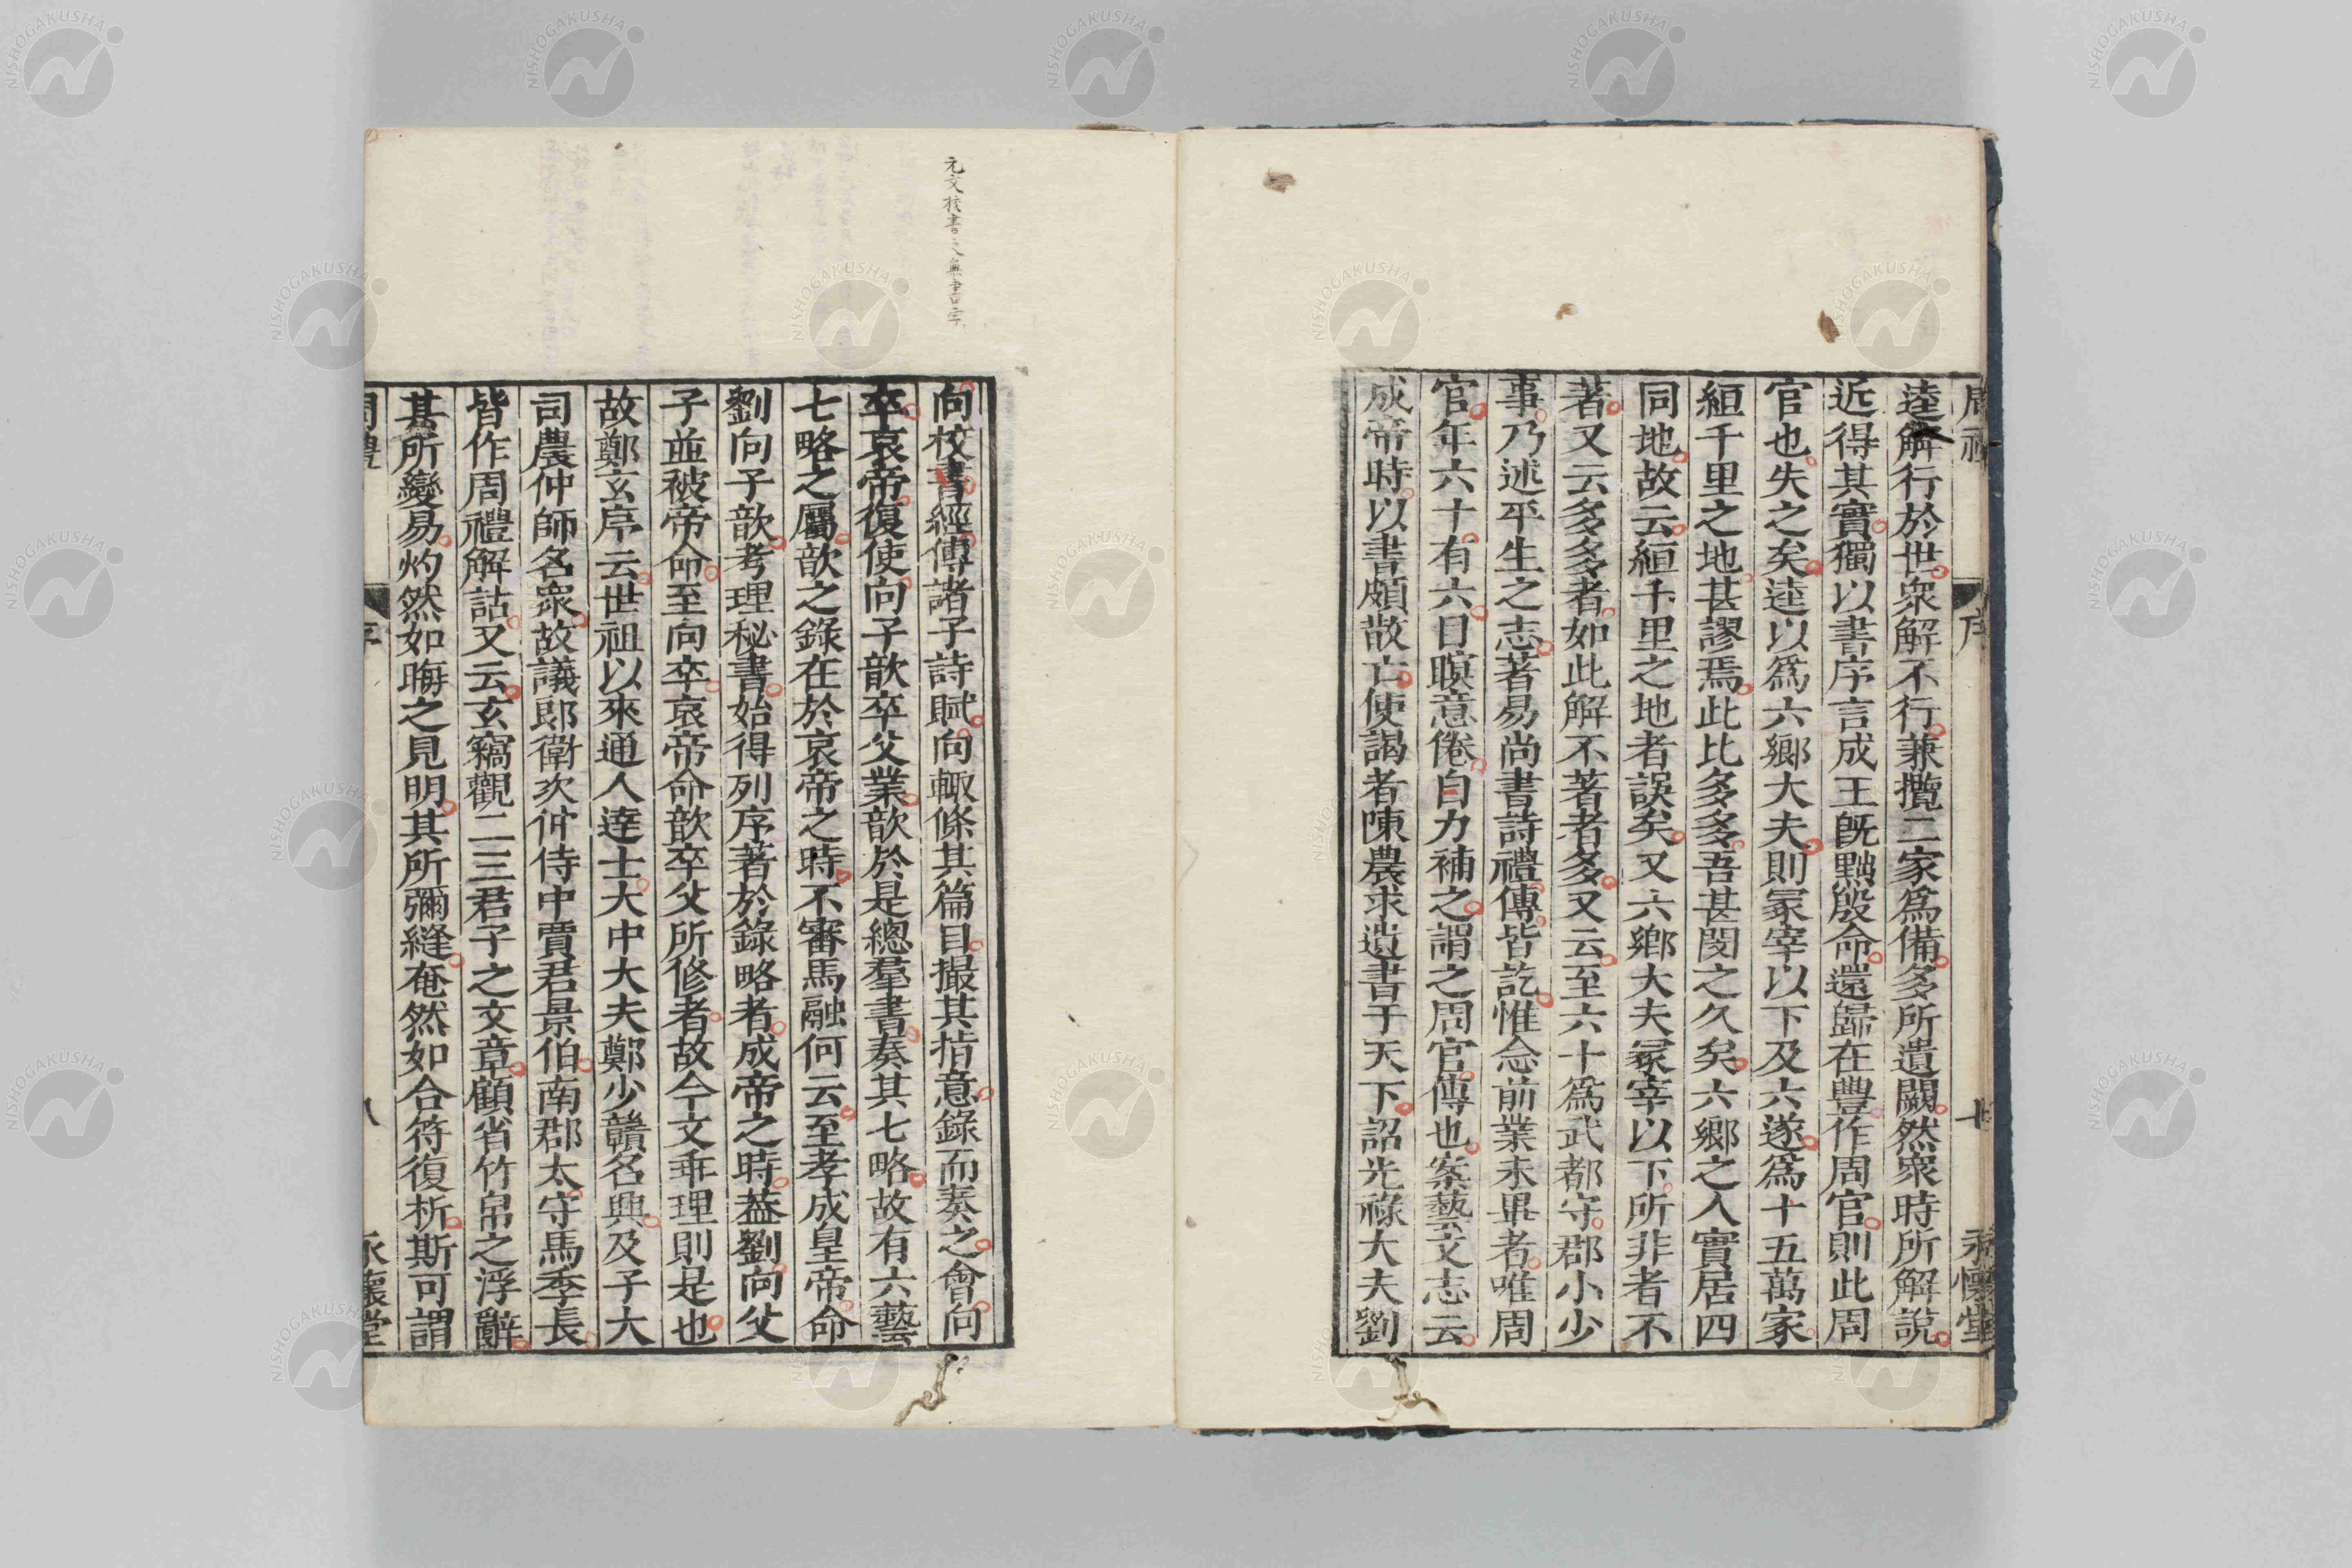 周禮 序 七 永懷堂
逵解行於世衆解不行兼攬二家爲備多所遺闕然衆時所解說
近得其實獨以書序言成王旣黜殷命還歸在豐作周官則此周
官也失之矣逵以爲六鄉大夫則冢宰以下及六遂爲十五萬家
絙千里之地甚謬焉此比多多吾甚閔之久矣六鄉之人實居四
同地故云絙千里之地者誤矣又六鄉大夫冢宰以下所非者不
著又云多多者如此解不著者多又云至六十爲武都守郡小少
事乃述平生之志著易尚書詩禮傳皆訖惟念前業未畢者唯周
官年六十有六目瞑意倦自力補之謂之周官傳也案藝文志云
成帝時以書頗散亡使謁者陳農求遺書于天下詔光祿大夫劉
元文校書之無書字
向校書經傳諸子詩賦向輙條其篇目撮其指意錄而奏之會向
卒哀帝復使向子歆卒父業歆於是總羣書奏其七略故有六藝
七略之屬歆之錄在於哀帝之時不審馬融何云至孝成皇帝命
劉向子歆考理秘書始得列序著於錄略者成帝之時葢劉向父
子並被帝命至向卒哀帝命歆卒父所修者故今文乖理則是也
故鄭玄序云世祖以來通人達士大中大夫鄭少贛名興及子大
司農仲師名衆故議郞衛次仲侍中賈君景伯南郡太守馬季長
皆作周禮解詁又云玄竊觀二三君子之文章顧省竹帛之浮辭
其所變易灼然如晦之見明其所彌縫奄然如合符復析斯可謂
周禮 序 八 永懷堂
NISHOGAKUSHA